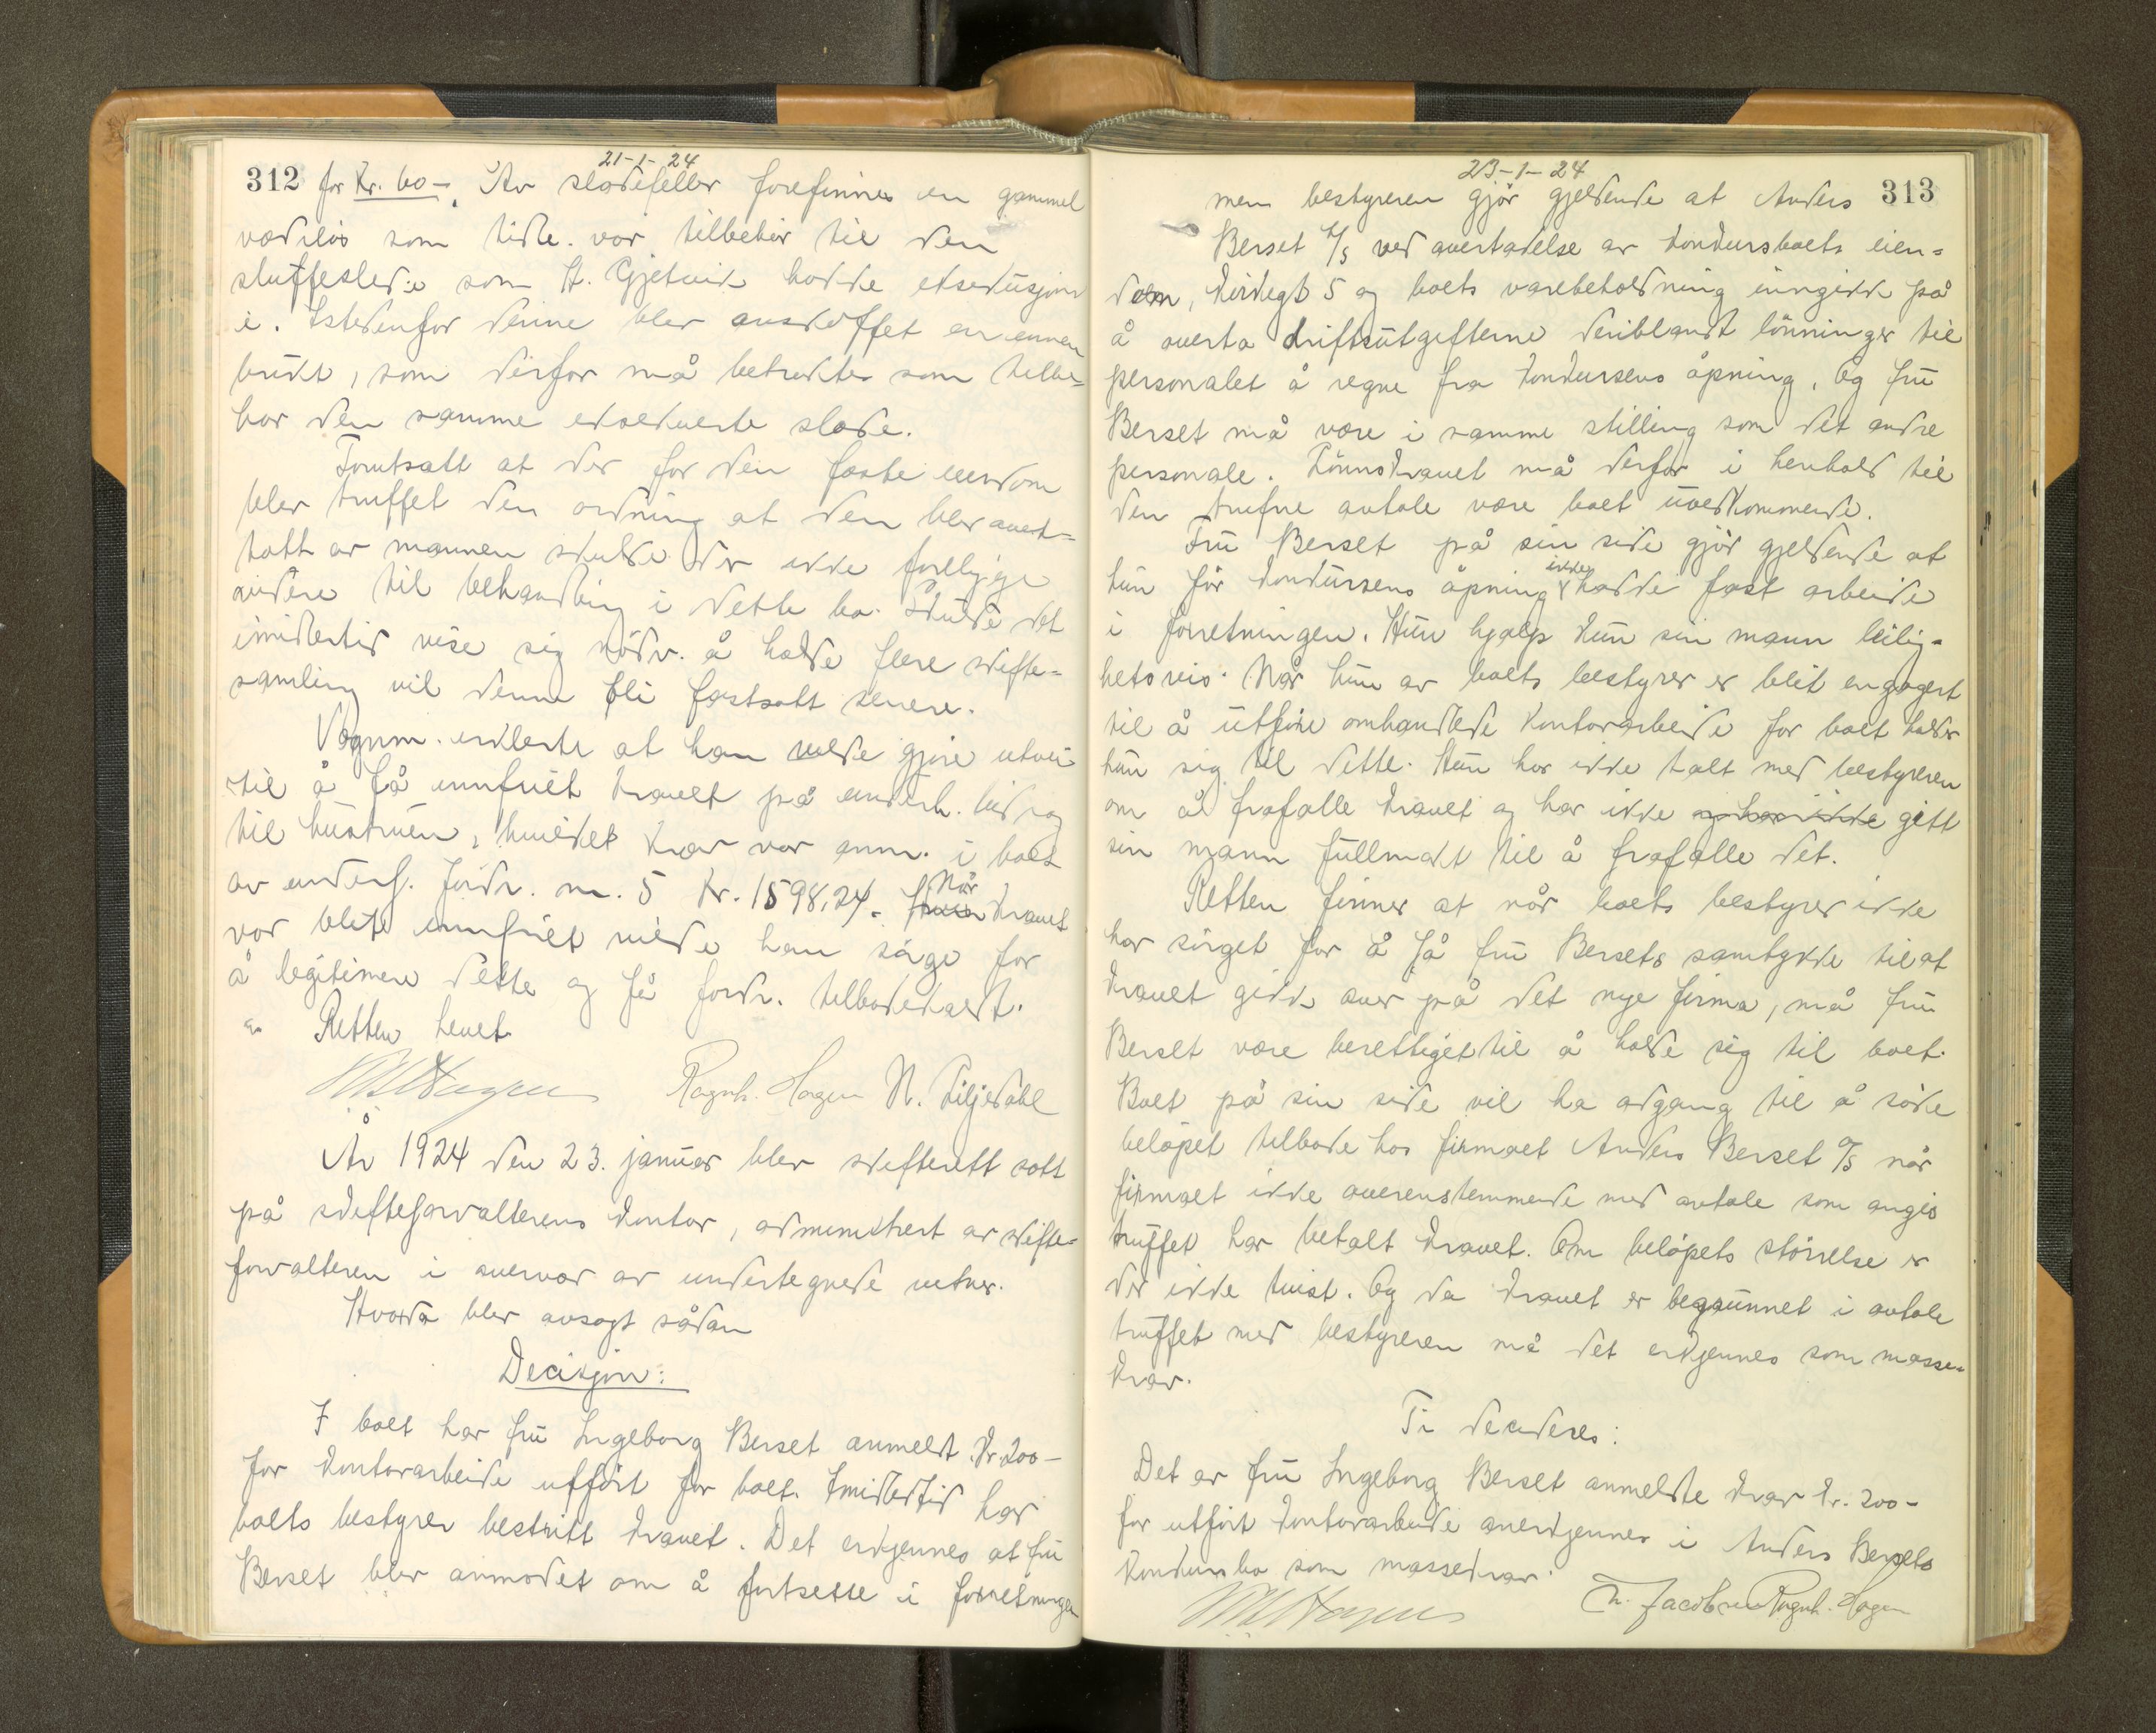 21-1-24
312 for kr. 60-. Av sladefeller forefinnes en gammel
værdiløs som tidl. var tilbehör til den
sluffeslede som H. Gjetvik hadde eksekusjon
i. Istedenfor denne blev anskaffet en annen
brukt, som derfor må betraktes som tilbe=
hör den samme eksekverte slæde.
Forutsatt at der for den faste eiendom
blev truffet den ordning at den blev overt=
tatt av mannen skulde der ikke foreligge
videre til behandling i dette bo. Skulde det
imidlertid vise sig nödv. å holde flere skifte=
samling vil denne bli fastsatt senere.
Vognm. erklærte at han vilde gjöre utvei
til å få innfriet kravet på underh. bidrag
til hustruen, hvilket krav var anm. i boet
av underf. fordr. nr. 5 kr. 1598,24. Når kravet
var blit innfriet vilde han sörge for
å legitimere dette og få fordr. tilbakekaldt.
Retten hevet.
Ragnh. Hagen N. Liljedahl
År 1924 den 23. januar blev skifterett satt
på skifteforvalterens kontor, administrert av skifte=
forvalteren i overvær av undertegnede vitner.
Hvorda blev avsagt sådan
Decisjon:
I boet har fru Ingeborg Berset anmeldt kr. 200-
for kontorarbeide utfört for boet. Imidlertid har
boets bestyrer bestritt kravet. Det erkjennes at fru
Berset blev anmodet om å fortsette i forretningen
23-1-24
men bestyreren gjör gjeldende at Anders 313
Berset A/S ved overtakelse av konkursboets eien=
dom, Kirkegt 5 og boets varebeholdning inngikk på
å overta driftsutgifterne deriblandt lönninger til
personalet å regne fra konkursens åpning, og fru
Berset må være i samme stilling som det andre
personale. Lönnskravet må derfor i henhold til
den trufne avtale være boet uvedkommende.
Fru Berset på sin side gjör gjeldende at
hun för konkursens åpning ikke hadde fast arbeide
i forretningen. Hun hjalp kun sin mann leilig=
hetsvis. Når hun av boets bestyrer er blit engagert
til å utföre omhandlede kontorarbeide for boet holder
hun sig til dette. Hun har ikke talt med bestyreren
om å frafalle kravet og har ikke og har ikke gitt
sin mann fullmakt til å frafalle det.
Retten finner at når boets bestyrer ikke
har sörget for å få fru Bersets samtykke til at
kravet gikk over på det nye firma, må fru
Berset være berettiget til å holde sig til boet.
Boet på sin side vil ha adgang til å söke
belöpet tilbake hos firmaet Anders Berset A/S når
firmaet ikke overenstemmende med avtale som angis
truffet har betalt kravet. Om belöpets störrelse er
der ikke tvist. Og da kravet er begrunnet i avtale
truffet med bestyreren må det erkjennes som masse=
krav.
Ti decideres:
Det av fru Ingeborg Berset anmeldte krav kr. 200-
for utfört kontorarbeide anerkjennes i Anders Bersets
konkursbo som massekrav.
Jacobsen Ragnh. Hagen